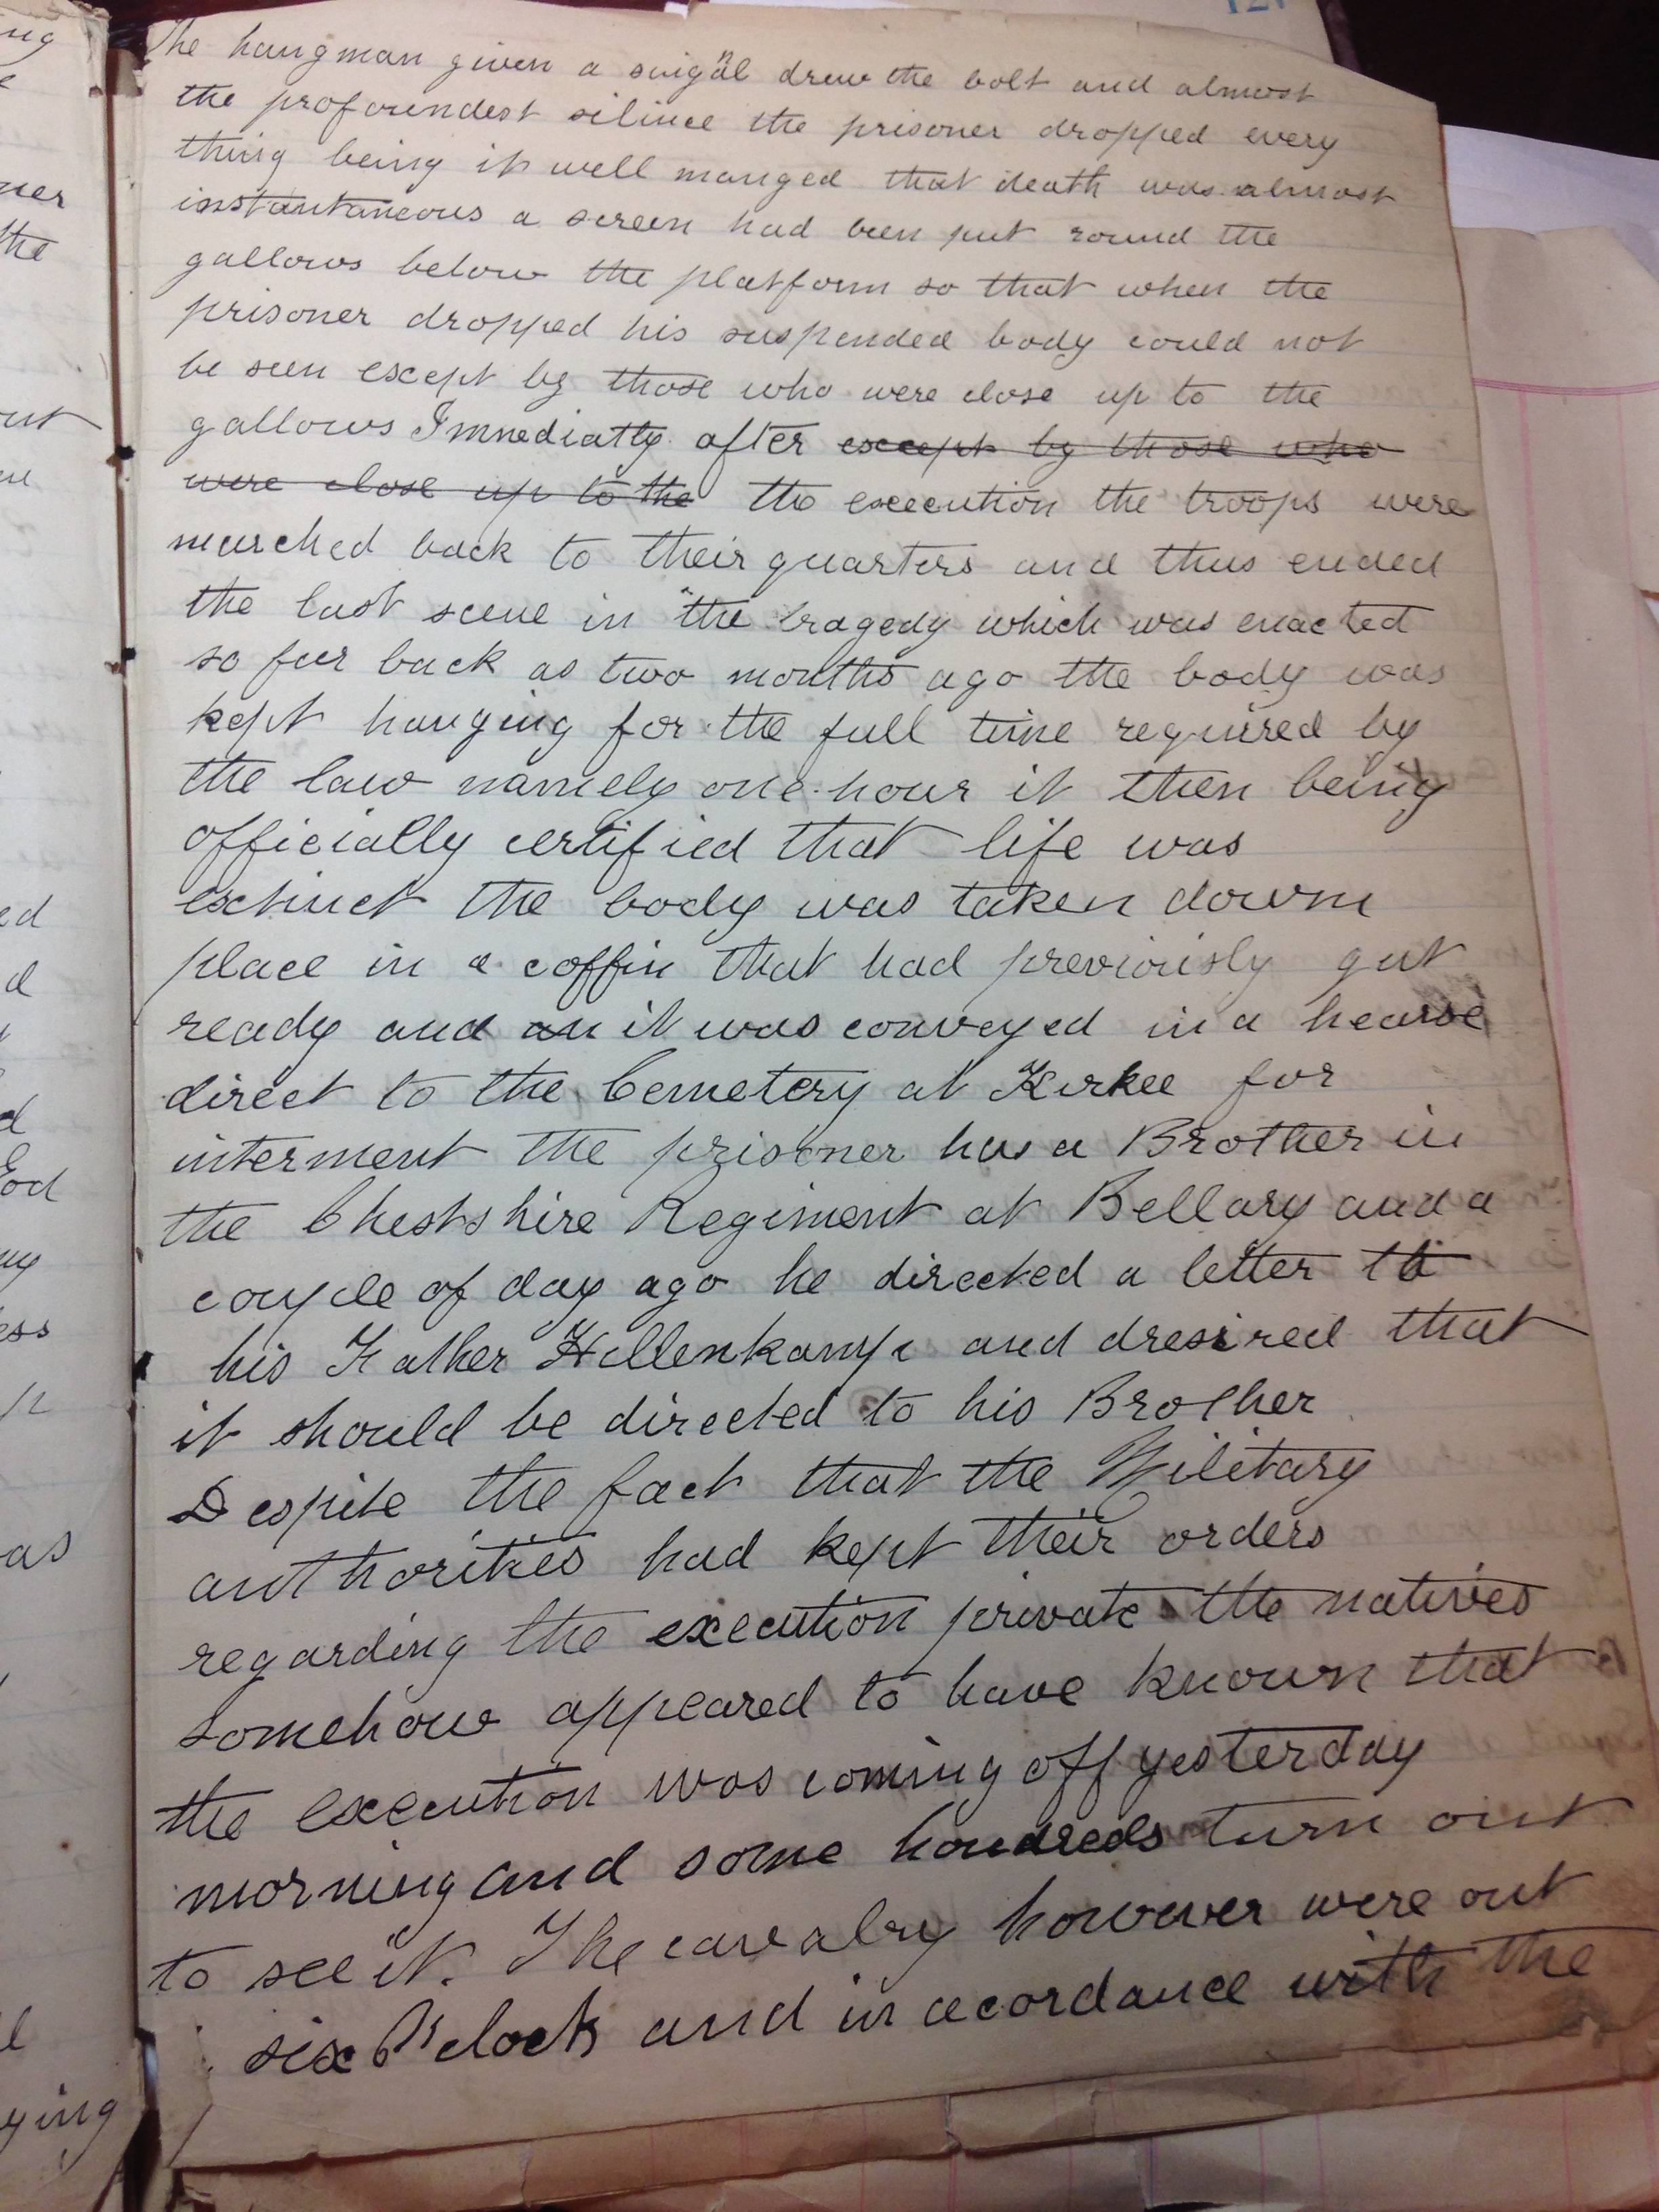 The hangman given a singal drew the bolt and almost
the profoundest silince the prisoner dropped every
thing being it well manged that death was almost
instantaneous a screen had been put round the
gallows below the platform so that when the
prisoner dropped his suspended body could not
be seen except by those who were close up to the
gallows Immediatly after except by those who
were close up to the the execution the troops were
marched back to their quarters and thus ended
the last scene in the tragedy which was enacted
so far back as two months ago the body was
kept hanging for the full time required by
the law namely one hour it then being
officially certified that life was
extinct the body was taken down
place in a coffin that had previously gut
ready and an it was conveyed in a hearse
direct to the Cemetery at Kirkee for
interment the prisoner has a Brother in
the Chestshire Regiment at Bellary and a
couple of day ago he directed a letter to
his Father Hellenkamp and dresired that
it should be directed to his Brother
Despite the fact that the Military
authorities had kept their orders
regarding the execution private the natives
somehow appeared to have known that
the execution was coming off yesterday
morning and some houdreds turn out
to see it. The cavalry however were out
six O'clock and in acordance with the
ner
the
ed
d
d
God
ess
as
ying